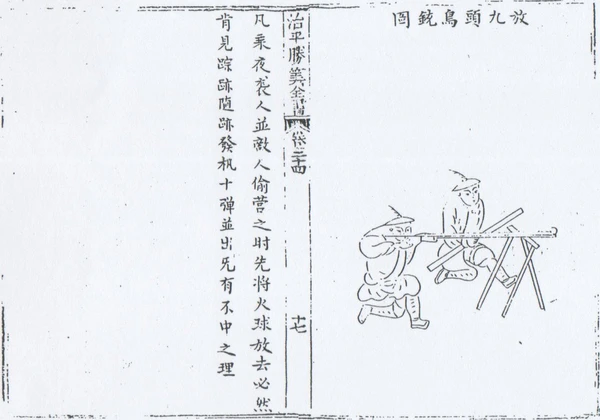 放九頭鳥銃图
治平勝筭全書
卷二十四
十七
凡乘夜袭人並敵人偷营之时先將火球放去必然
肯見踪跡隨跡發机十彈並出旡有不中之理